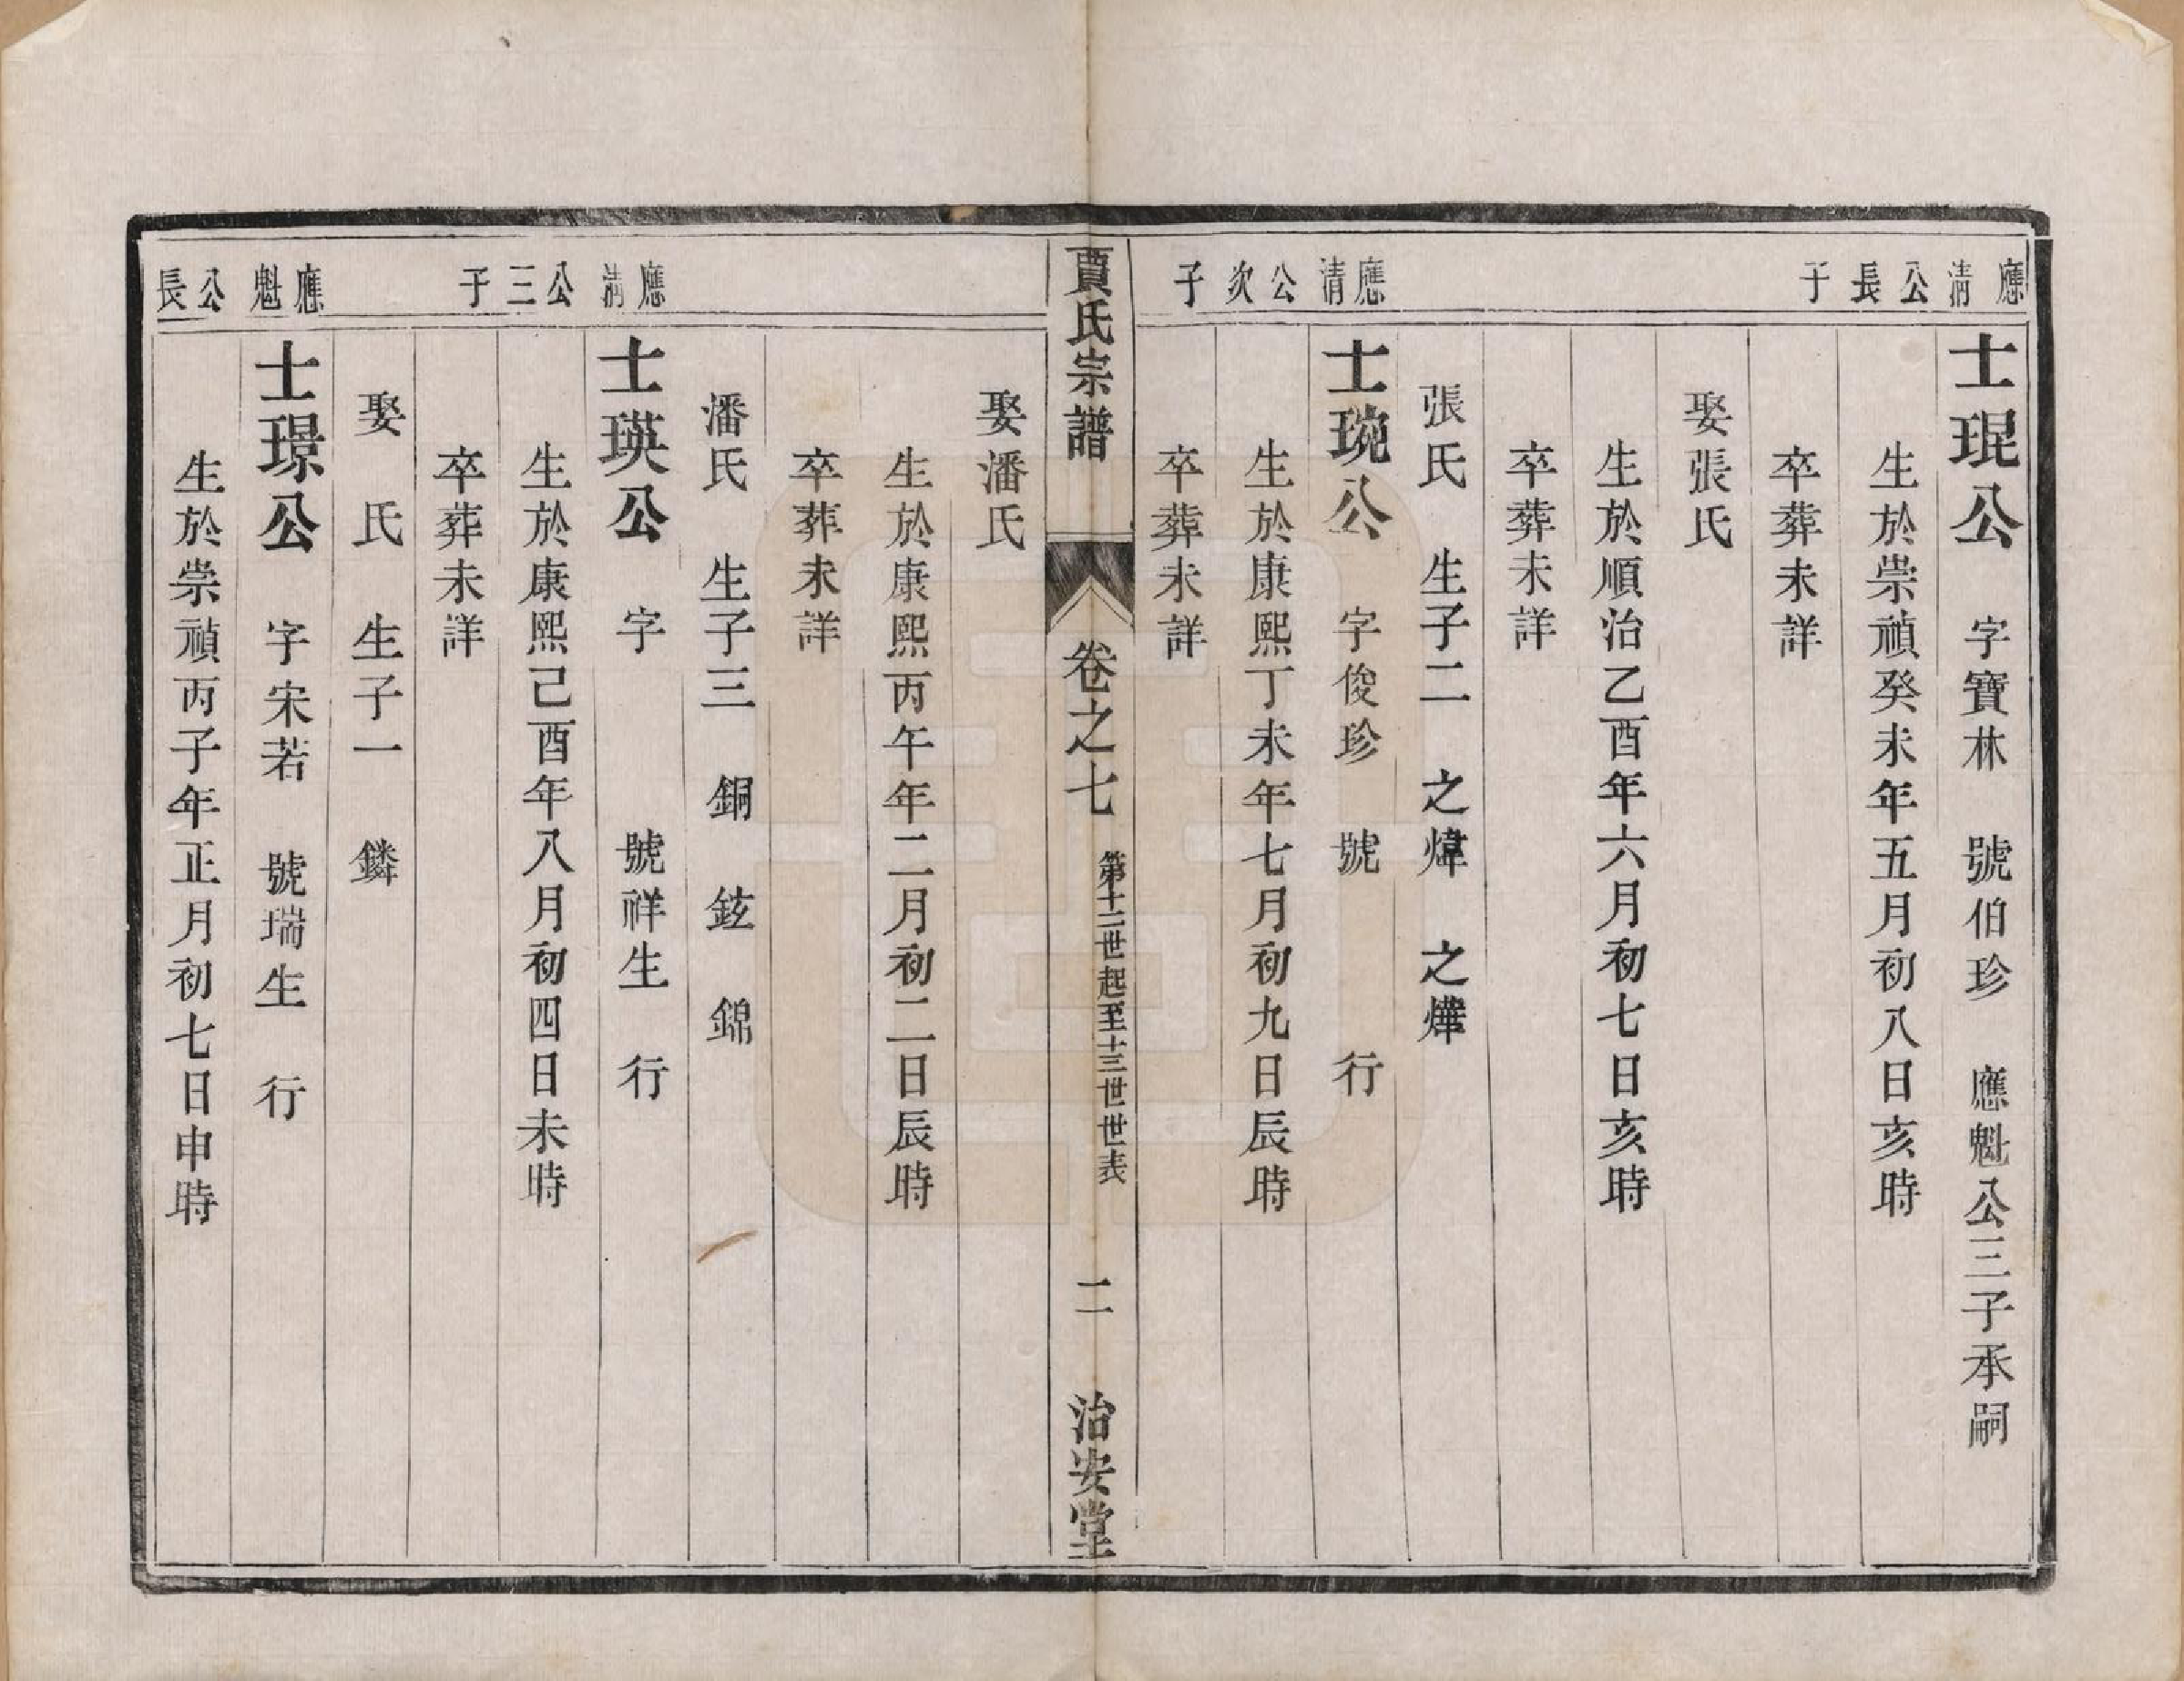 應清公長子
士琨公　字寶林　號伯珍　應魁公三子承嗣
生於崇禎癸未年五月初八日亥時
卒葬未詳
娶張氏
生於順治乙酉年六月初七日亥時
卒葬未詳
張氏　生子二　之煒　之燁
應清公次子
士琬公　字俊珍　號　行
生於康熙丁未年七月初九日辰時
卒葬未詳
賈氏宗譜
卷之七
第十二世起至十三世世表
二
治安堂
娶潘氏
生於康熙丙午年二月初二日辰時
卒葬未詳
潘氏　生子三　銅　鉉　錦
應淸公三子
士瑛公　字　號祥生　行
生於康熙己酉年八月初四日未時
卒葬未詳
娶　氏　生子一　鏻
應魁公長
士璟公　字宋若　號瑞生　行
生於崇禎丙子年正月初七日申時